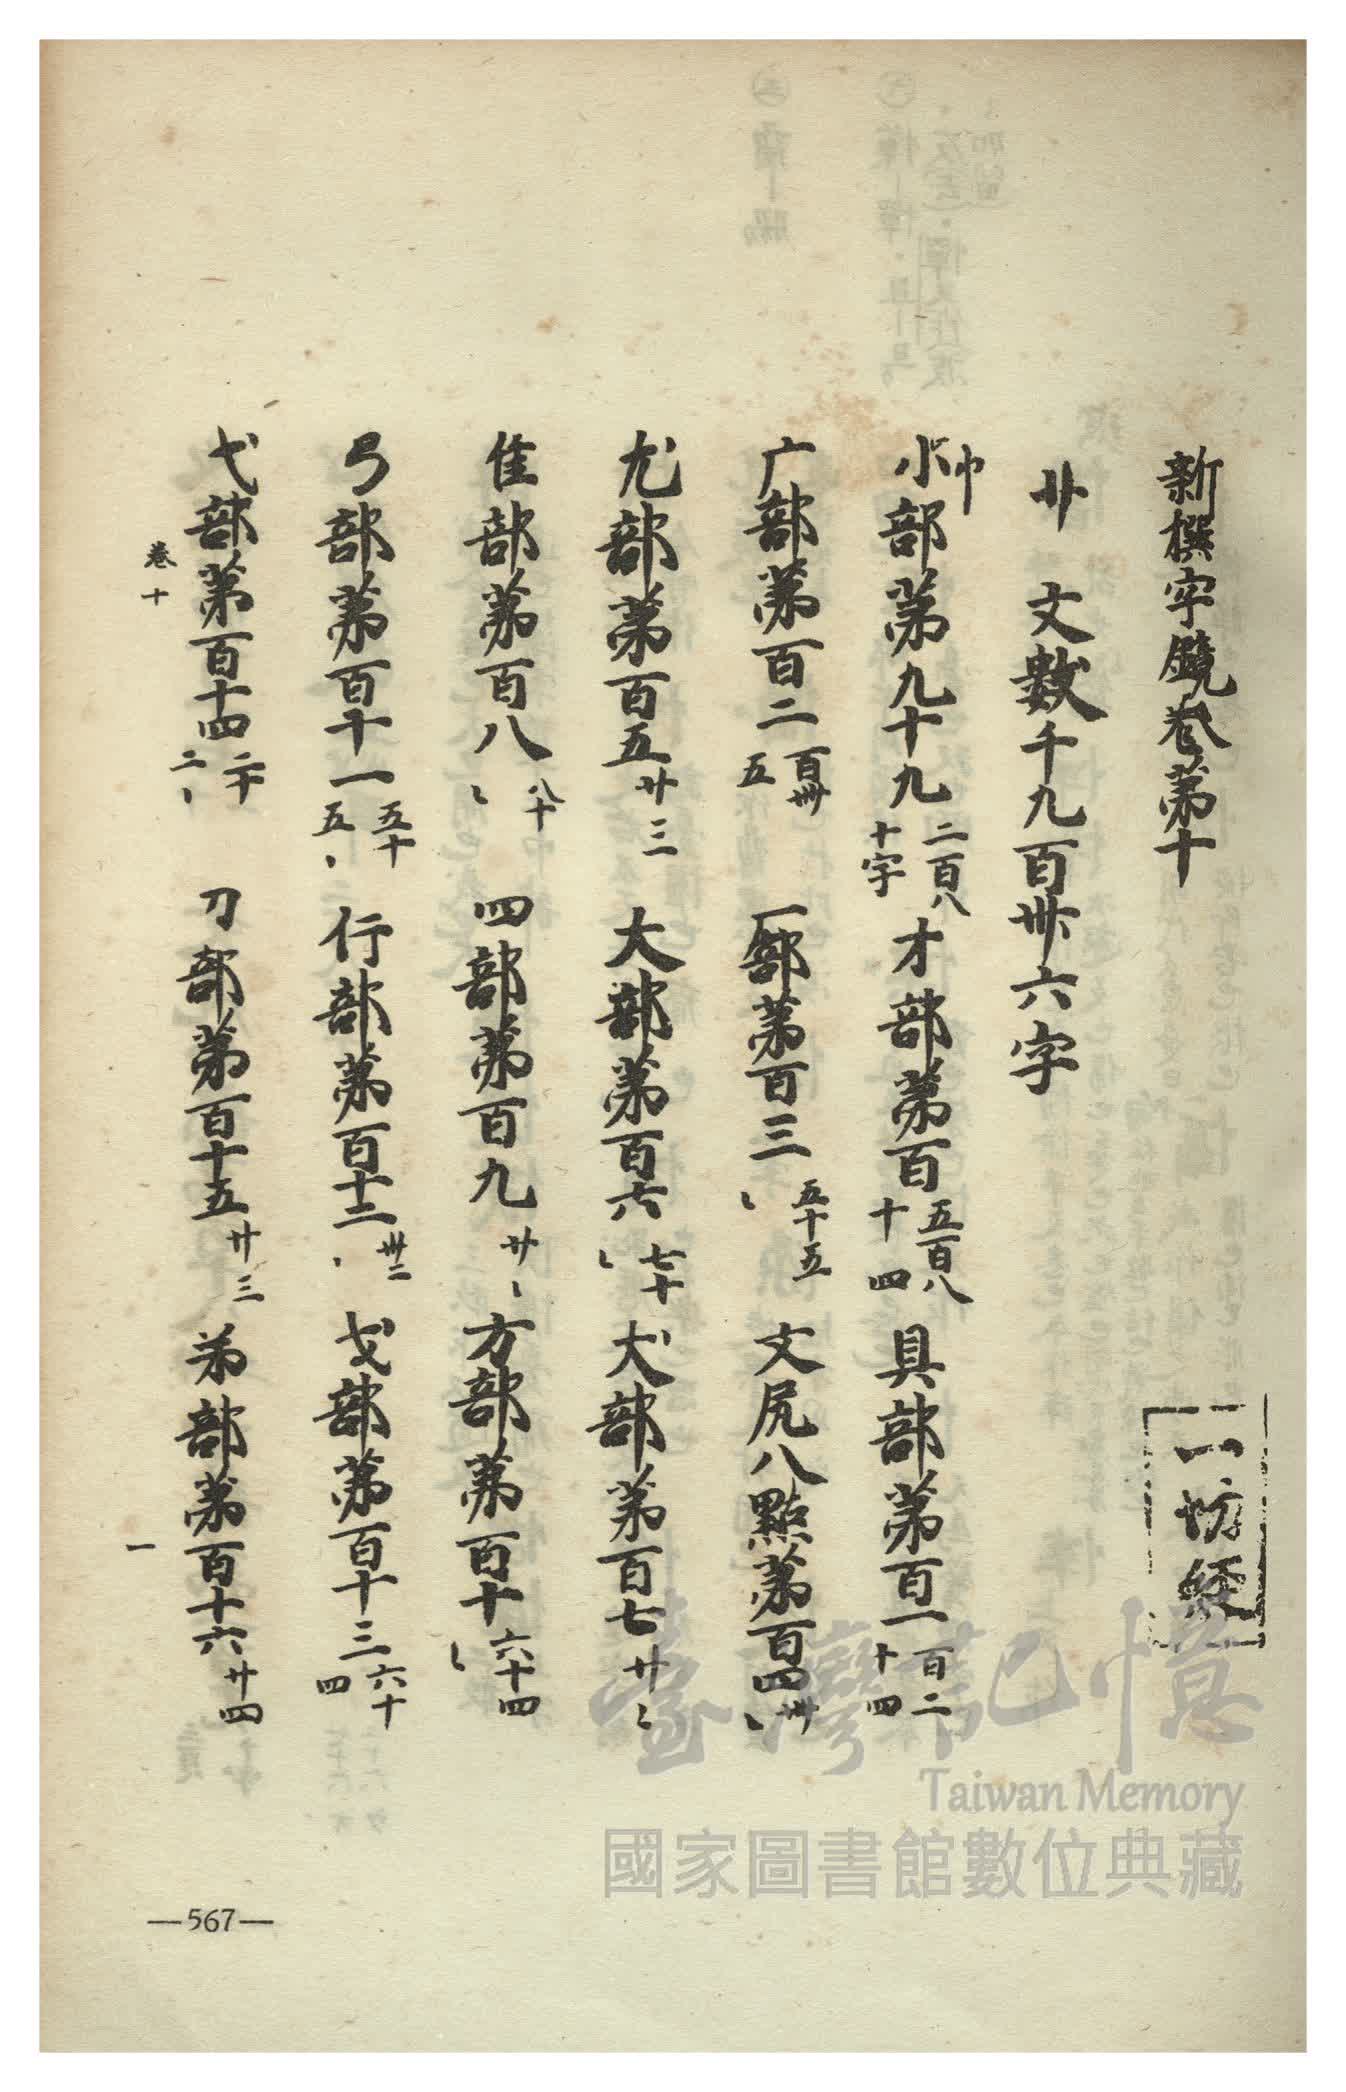 新撰字鏡卷苐十
一切経
廾 文數千九百卌六字
小巾部苐九十九二百八十字 才部苐百五百八十四 具部苐百一百二十四
广部苐百二百卌五 厂部苐百三五十五、 文尻八點苐百四卌、
尤部苐百五廿三 大部苐百六七十、 犬部苐百七廿、
隹部苐百八八十、 四部苐百九廿、 方部苐百十六十四、
弓部苐百十一五十五、 行部苐百十二卌二、 戈部苐百十三六十四
弋部苐百十四二十二、 刀部苐百十五廿三 弟部苐百十六廿四
卷十
一
—567—
臺灣記憶
Taiwan Memory
國家圖書館數位典藏